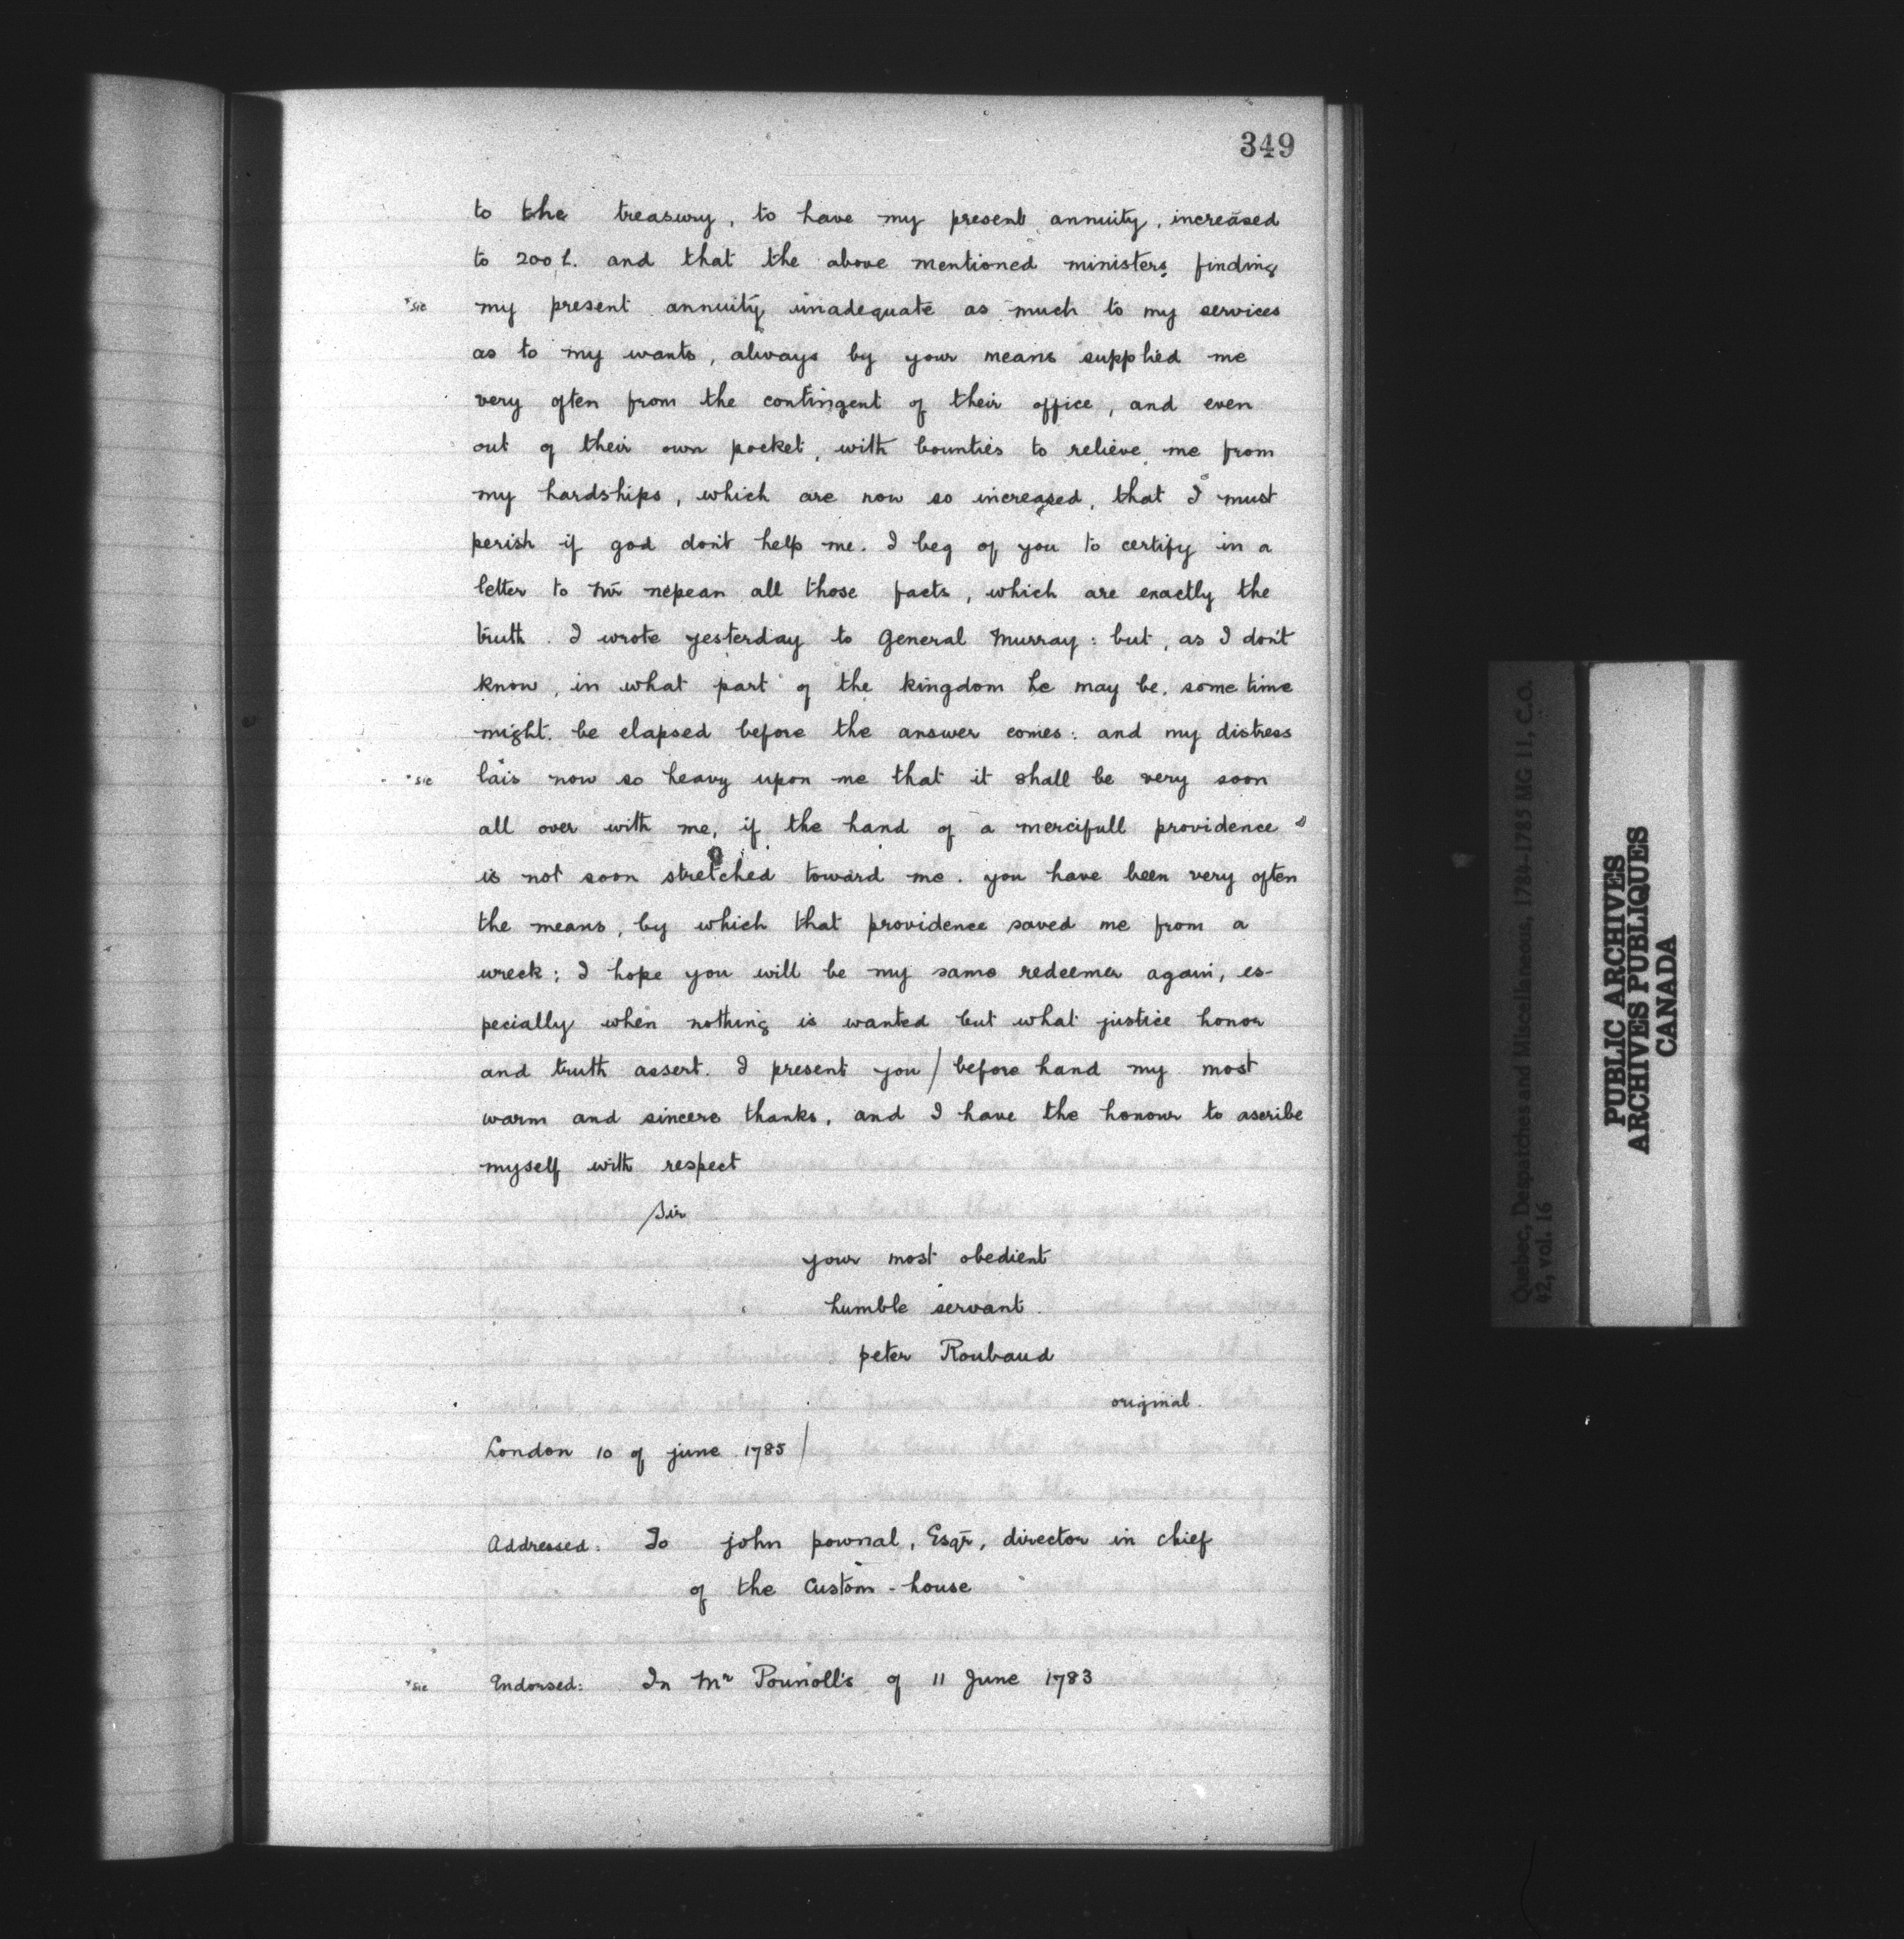 349
to the treasury, to have my present annuity, increased
to 200 L. and that the above mentioned ministers finding
*sic my present annuity inadequate as much to my services
as to my wants, always by your means supplied me
very often from the contingent of their office, and even
out of their own pocket, with bounties to relieve me from
my hardships, which are now so increased, that I must
perish if god don't help me. I beg of you to certify in a
letter to mr nepean all those facts, which are exactly the
truth. I wrote yesterday to general Murray: but, as I don't
know, in what part of the kingdom he may be, some time
might be elapsed before the answer comes: and my distress
*sic lais now so heavy upon me that it shall be very soon
all over with me, if the hand of a mercifull providence
is not soon stretched toward me. you have been very often
the means, by which that providence saved me from a
wreck; I hope you will be my same redeemer again, es-
pecially when nothing is wanted but what justice honor
and truth assert. I present you / before hand my most
warm and sincere thanks, and I have the honour to ascribe
myself with respect
Sir
your most obedient
humble servant.
peter Roubaud
original.
London 10 of june 1785 /
Addressed: To john pownal, Esqr, director in chief
of the custom-house
*sic Endorsed: In Mr Pounoll's of 11 June 1783
Quebec, Despatches and Miscellaneous, 1784-1785 MG 11, C.O.
42, vol. 16
PUBLIC ARCHIVES
ARCHIVES PUBLIQUES
CANADA